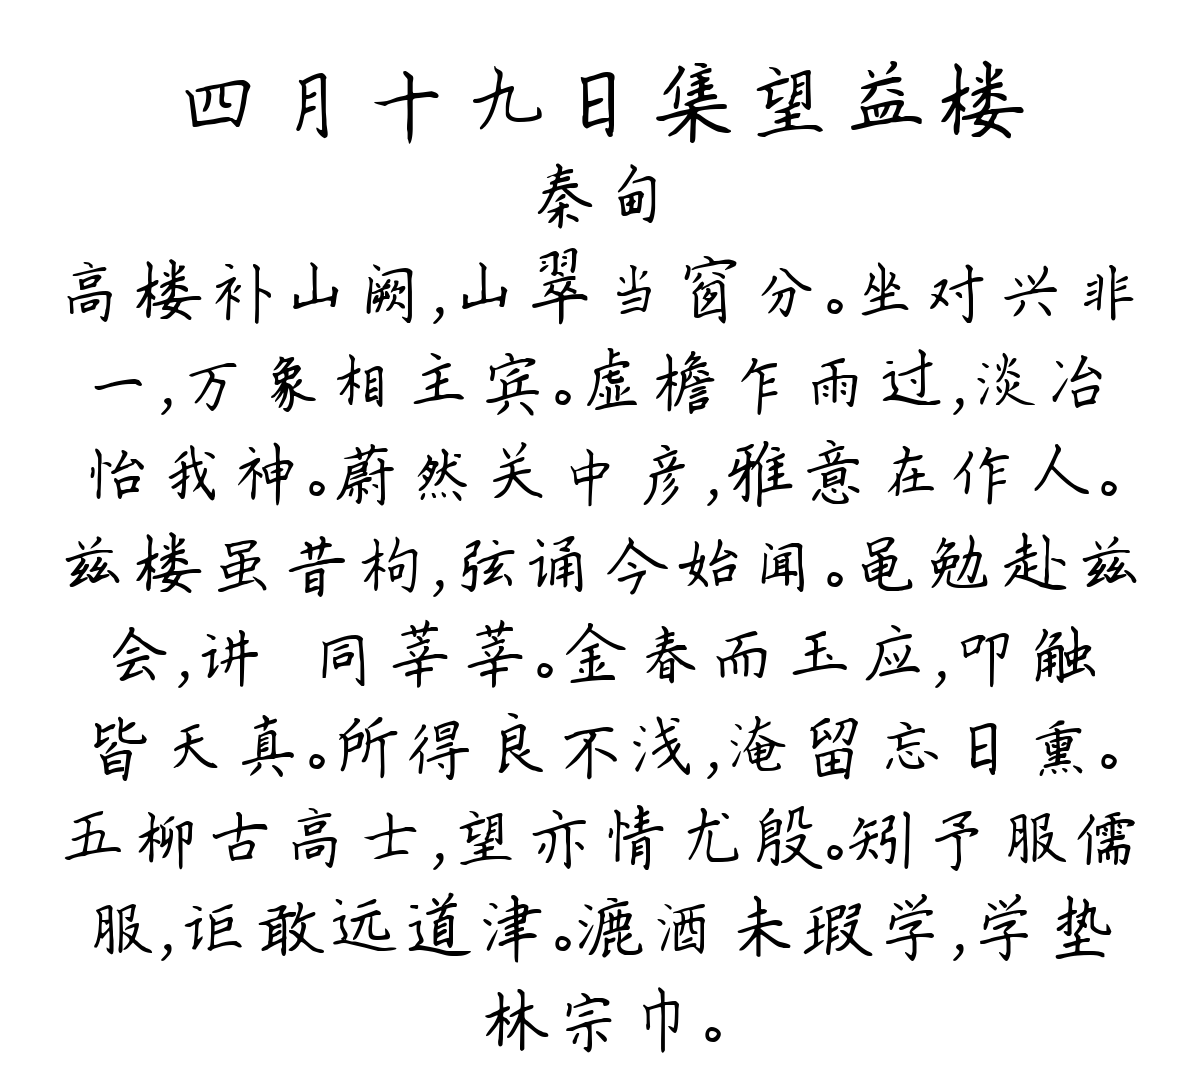 四月十九日集望益楼
秦甸
高楼补山阙,山翠当窗分。坐对兴非
一,万象相主宾。虚檐乍雨过,淡冶
怡我神。蔚然关中彦,雅意在作人。
兹楼虽昔构,弦诵今始闻。黾勉赴兹
会,讲 同莘莘。金春而玉应,叩触
皆天真。所得良不浅,淹留忘日熏。
五柳古高士,望亦情尤殷。矧予服儒
服,讵敢远道津。漉酒未瑕学,学垫
林宗巾。